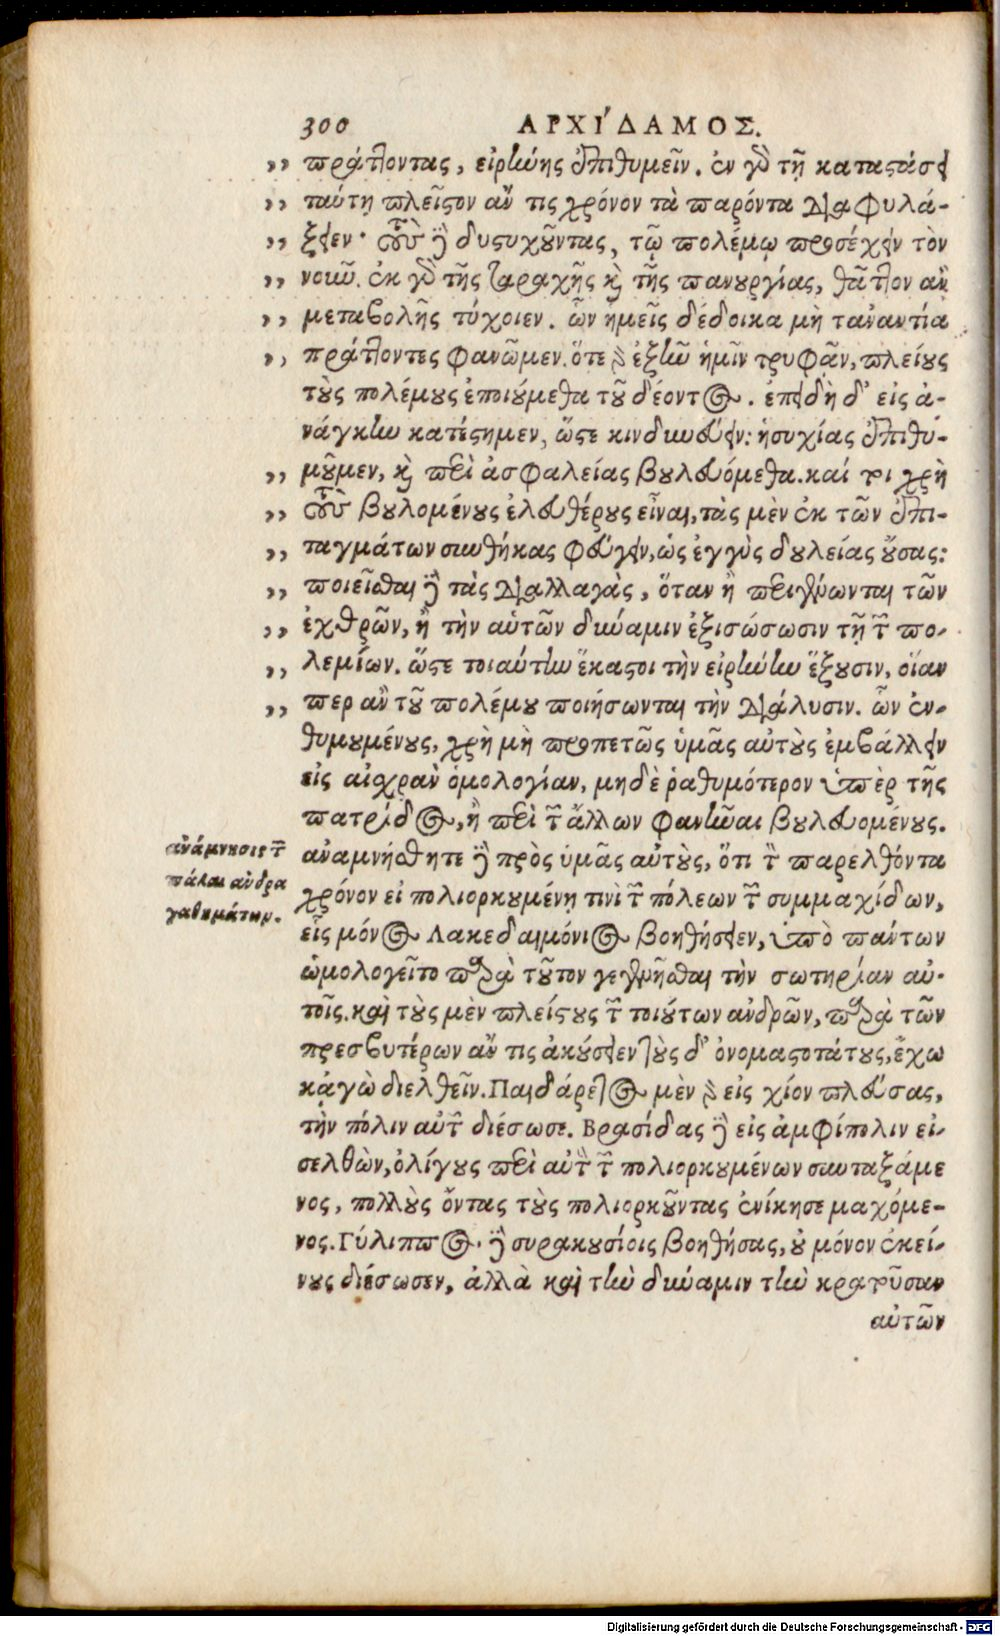 300 ΑΡΧΙ´ΔΑΜΟΣ.
,, πράττοντας, εἰρήνης ἐπιθυμεῖν. ἐν γὸ τῇ καταστάσει
,, ταύτῃ πλεῖστον ἄν τις χρόνον τὰ παρόντα διαφυλά-
,, ξειεν· τοὺς ἢ δυστυχοῦντας, τῷ πολέμῳ προσέχειν τὸν
,, νοιῦ. ἐκ γὸ τῆς ταραχῆς καὶ τῆς πανουργίας, θᾶττον ἂν
,, μεταβολῆς τύχοιεν. ὧν ἡμεῖς δέδοικα μὴ τἀναντία
,, πράττοντες φανῶμεν. ὅτε μὲν ἐξῆν ἡμῖν τρυφᾶν, πλείους
τοὺς πολέμους ἐποιούμεθα τοῦ δέοντος. ἐπειδὴ δ' εἰς ἀ-
νάγκην κατέστημεν, ὥστε κινδυνεύειν: ἡσυχίας ἐπιθυ-
,, μοῦμεν, καὶ περὶ ἀσφαλείας βουλευόμεθα. καί τοι χρὴ
,, τοὺς βουλομένους ἐλευθέρους εἶναι, τὰς μὲν ἐκ τῶν ἐπι-
,, ταγμάτων συνθήκας φεύγειν, ὡς ἐγγὺς δουλείας οὔσας:
,, ποιεῖσθαι δὲ τὰς διαλλαγὰς, ὅταν ἢ περιγένωνται τῶν
,, ἐχθρῶν, ἢ τὴν αὑτῶν δύναμιν ἐξισώσωσιν τῇ τῶν πο-
,, λεμίων. ὥστε τοιαύτην ἕκαστοι τὴν εἰρήνην ἕξουσιν, οἵαν
,, περ ἂν τοῦ πολέμου ποιήσωνται τὴν διάλυσιν. ὧν ἐν-
θυμουμένους, χρὴ μὴ προπετῶς ὑμᾶς αὐτοὺς ἐμβάλλειν
εἰς αἰσχρὰν ὁμολογίαν, μηδὲ ῥαθυμότερον ὑπὲρ τῆς
πατρίδος, ἢ περὶ τῶν ἄλλων φανῆναι βουλευομένους.
ἀνάμνησις τῶν
πάλαι ἀνδρα
γαθημάτων.
ἀναμνήσθητε δὲ πρὸς ὑμᾶς αὐτοὺς, ὅτι τὸν παρελθόντα
χρόνον εἰ πολιορκουμένῃ τινὶ τῶν πόλεων τῶν συμμαχίδων,
εἷς μόνος Λακεδαιμόνιος βοηθήσειεν, ὑπὸ πάντων
ὡμολογεῖτο παρὰ τοῦτον γεγενῆσθαι τὴν σωτηρίαν αὐ-
τοῖς. καὶ τοὺς μὲν πλείστους τῶν τοιούτων ἀνδρῶν, παρὰ τῶν
πρεσβυτέρων ἄν τις ἀκούσειεν τοὺς δ' ὀνομαστοτάτους, ἔχω
κἀγὼ διελθεῖν. Παιδάρετος μὲν εἰς χίον πλεύσας,
τὴν πόλιν αὐτῶν διέσωσε. Βρασίδας δὲ εἰς ἀμφίπολιν εἰ-
σελθὼν, ὀλίγους περὶ αὐτὸν τῶν πολιορκουμένων συνταξάμε
νος, πολλοὺς ὄντας τοὺς πολιορκοῦντας ἐνίκησε μαχόμε-
νος. Γύλιππος· δὲ συρακουσίοις βοηθήσας, οὐ μόνον ἐκεί-
νους διέσωσεν, ἀλλὰ καὶ τὴν δύναμιν τὴν κρατοῦσαν
αὐτῶν
Digitalisierung gefördert durch die Deutsche Forschungsgemeinschaft - DFG